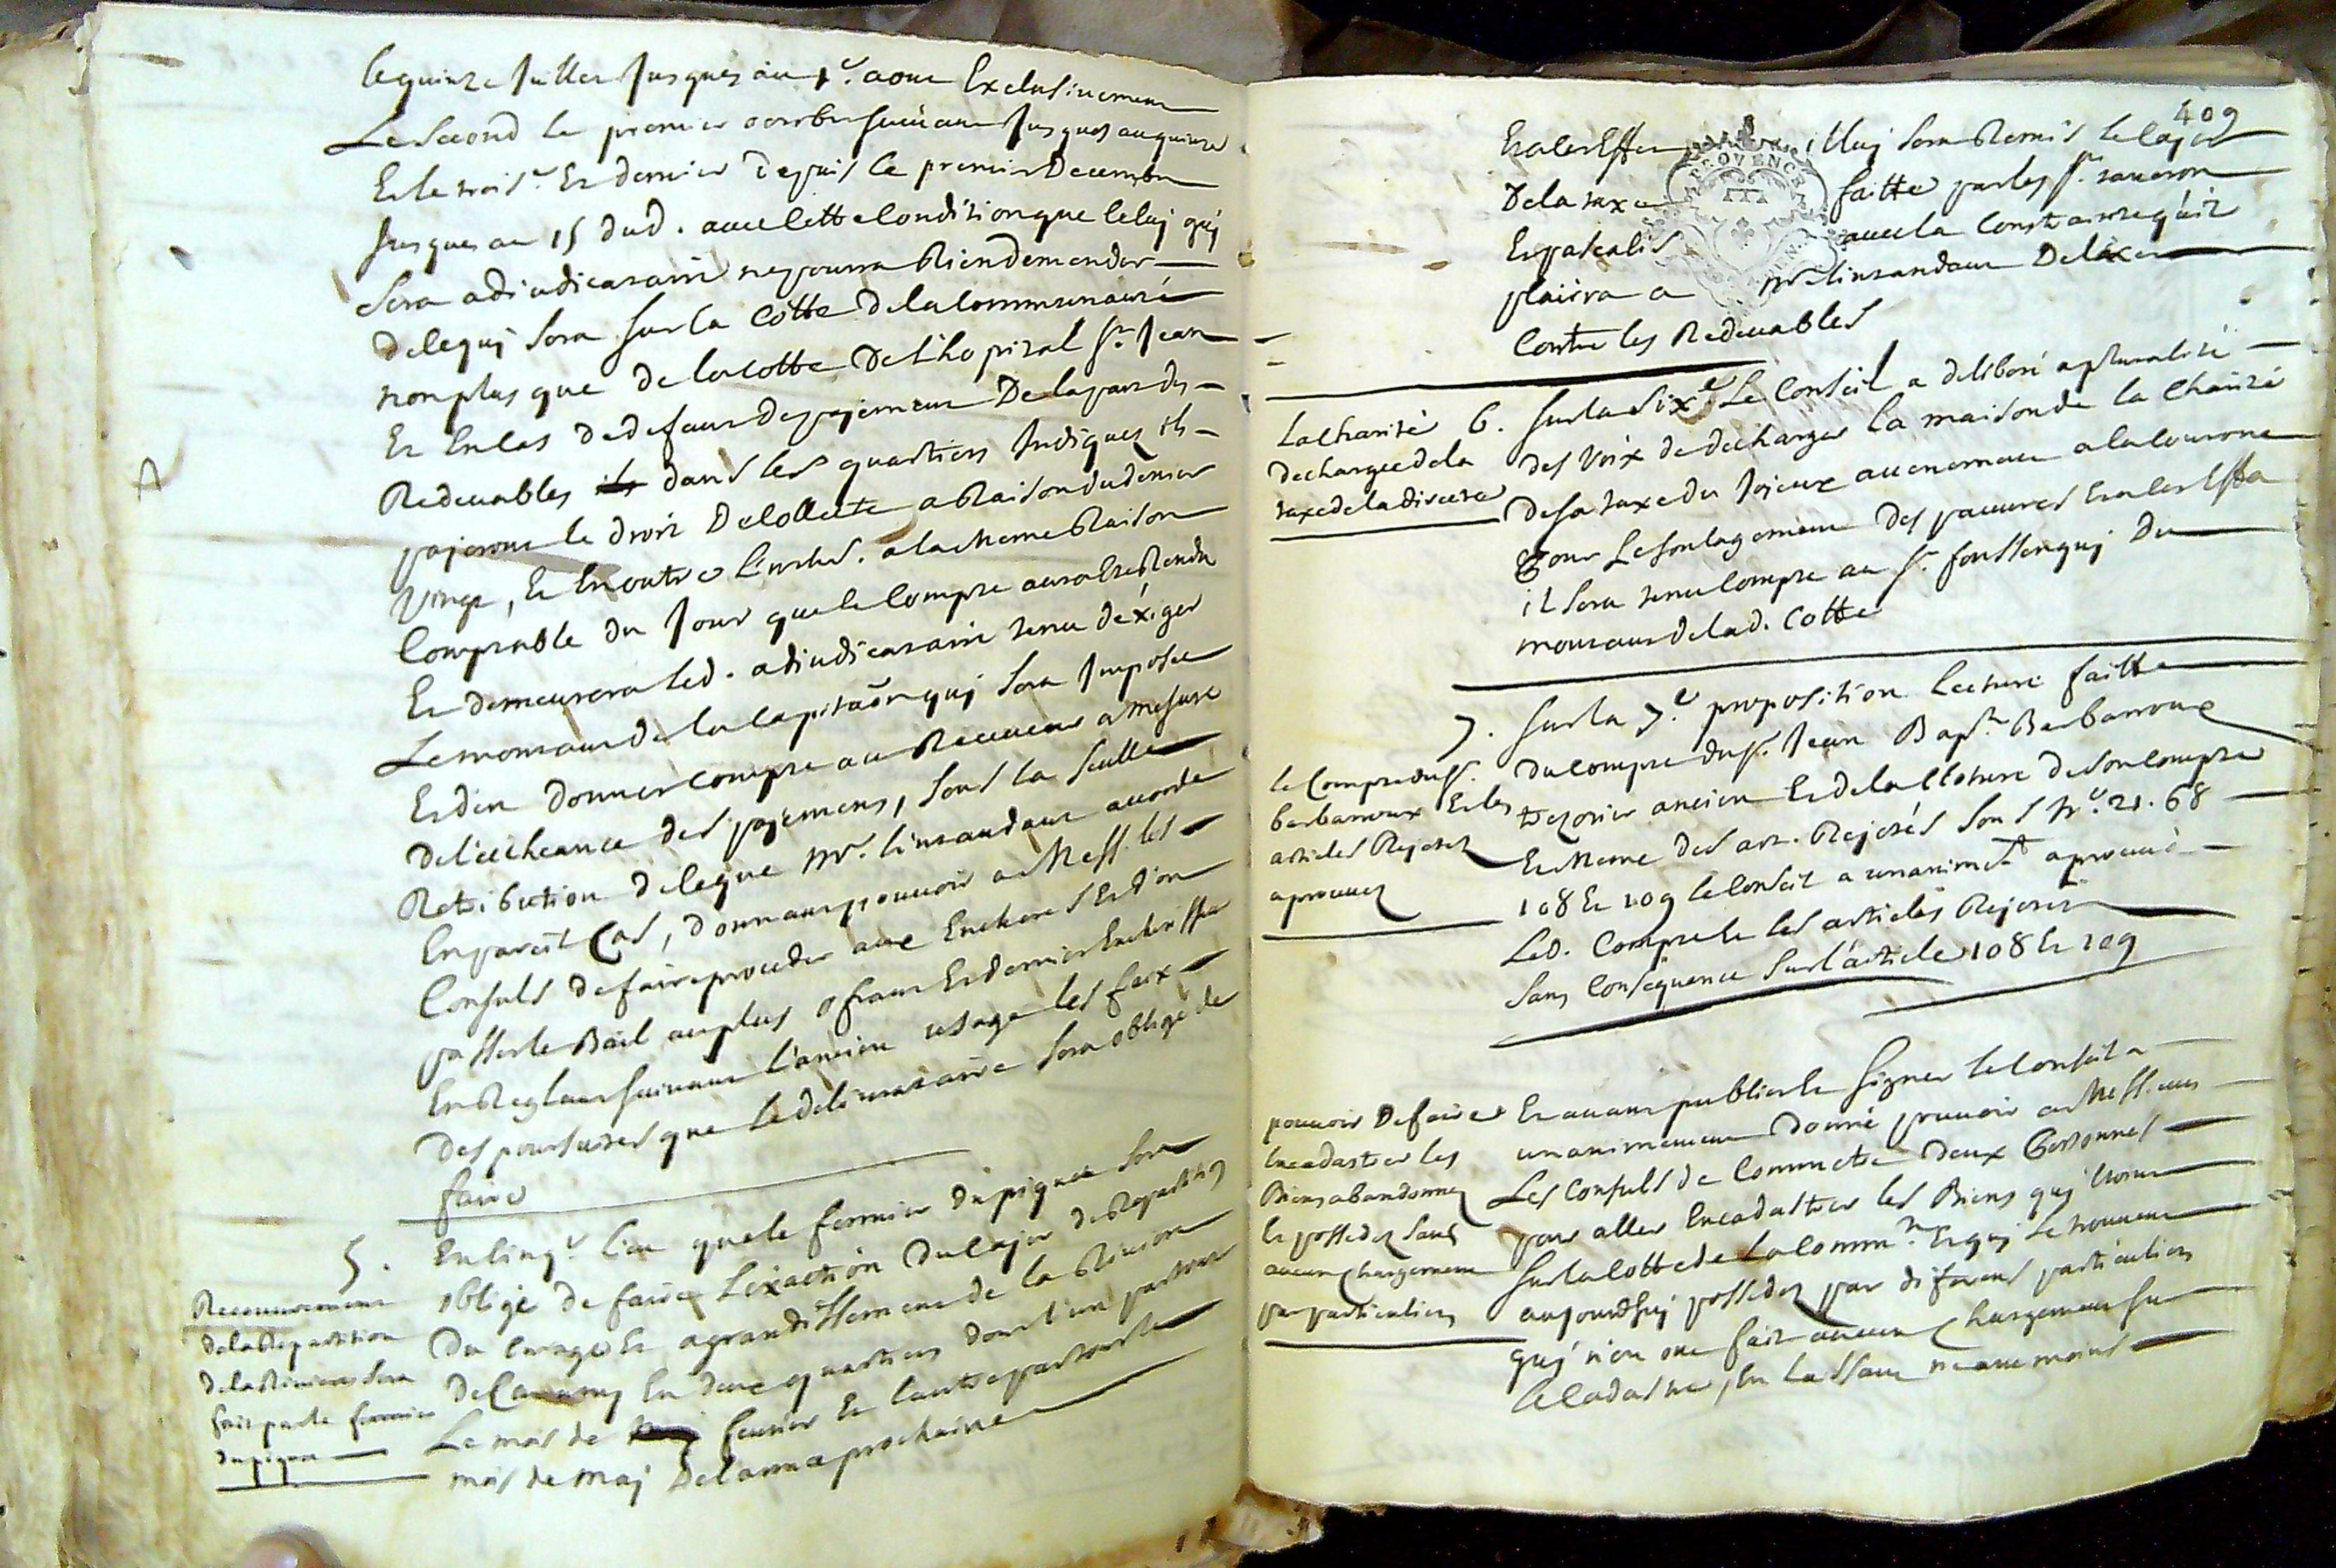 le quinze Juillet Jusques au 1.er aout Exclusivement
Le second le premier octobre suivant Jusques au quinze
Et le trois.e Et dernier depuis le premier Decembre
Jusques au 15 dud. avec cette condition que celuy quj
sera adiudicataire ne pourra Rien demender
de ce quj sera sur la cotte de la communauté
non plus que de la cotte de l'hopital st. Jean
Et en cas de defaut de pajement De la part des
Redevables dans les quartiers Indiques ils
pajeront le droit De collecte a Raison du denier
Vingt, Et En outre a la meme Raison
Comptable du Jour que le compte aura
Et demeurera led. adiudicataire tenu d'éxiger
Le montant de la capitaôn quj sera Imposée
Et d'en donner compte au Receveur a mesure
De l'écheance des pajemens, sous la seulle
Retribution de ce que mr. l'intandant accorde
En pareil Cas, donnant pouvoir a Mess. les
Consuls de faire proceder aux Encheres Et d'en
passer le Bail au plus ofrant Et dernier Encherisseur
En Reglant suivant l'ancien usage les fraix
Des poursuites que le deliverataire sera obligé de
faire
5. En cinq.e lieu que le fermier du piquet sera
obligé de faire l'exaction du cajer de Repartition
Du curage Et agrandissement de la Riviere
De Caramy En deux quartiers dont l'un par tout
Le mois de fevrier Et l'autre par tout le
mois de Maj De l'annee prochaine
Recouvrement
de la Repartition
de la Riviere sera
fait par le fermier
du piquet
409
Et a cet Effet il luj sera Remis le cajer
De la taxe faitte par les srs. taneron
Et pascalis avec la Contrainte qu'il
plaira a mr l'intandant De laxer
Contre les Redevables
La charité
dechargée de la
taxe de la
6. Sur la six.e Le Conseil a deliberé a pluralité
des Voix de decharger la maison de la Charité
de sa taxe du Joyeux avenement a la couronne
pour Le soulagement des pauvres Et a cet Effet
il sera tenu Compte au sr. foussenquj Du
montant de lad. cotte
le Compte du sr.
barbaroux Et les
articles Rejetez
aprouvez
7. Sur la 7.e proposition Lecture faitte
du compte du sr. Jean Bapt. Barbaroux
trezorier ancien Et de la cloture de son compte
Et meme des art. Rejetés sous n.° 21. 68
108 Et 109 le Conseil a unanimet aprouvé
Led. Compte Et les articles Rejetez
sans Consequence sur l'article 108 Et 109
pouvoir De faire
Encadastrer les
Biens abandonnez
Et possedez sans
aucun chargement
par particuliers
Et avant publier Et signer le Conseil a
unanimement donné pouvoir a Mess. eurs
Les Consuls de Commetre deux Personnes
pour aller Encadastrer les Biens quj sont
sur la cotte de la Comm.té Et quj se trouvent
aujourd'huj possedez par diferens particuliers
quj n'en ont fait aucun chargement sur
le Cadastre, En laissant neanmoins